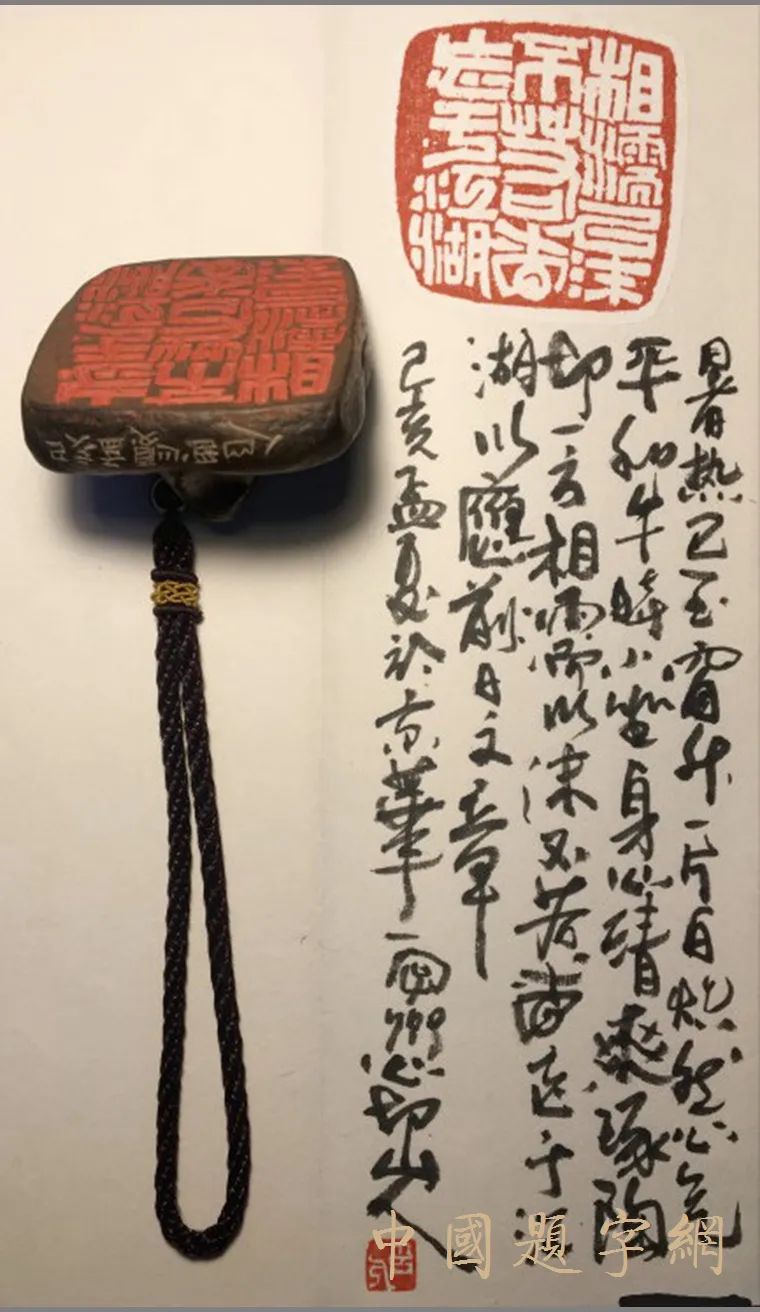 相濡以沫
不若
忘于江湖
暑热已至窗外一片白灿然心气
平和午時小坐身心清爽琢陶
印一方相濡以沫不若忘于江
湖以應前日文章
己亥孟夏於京華一心印山人
中國題字網